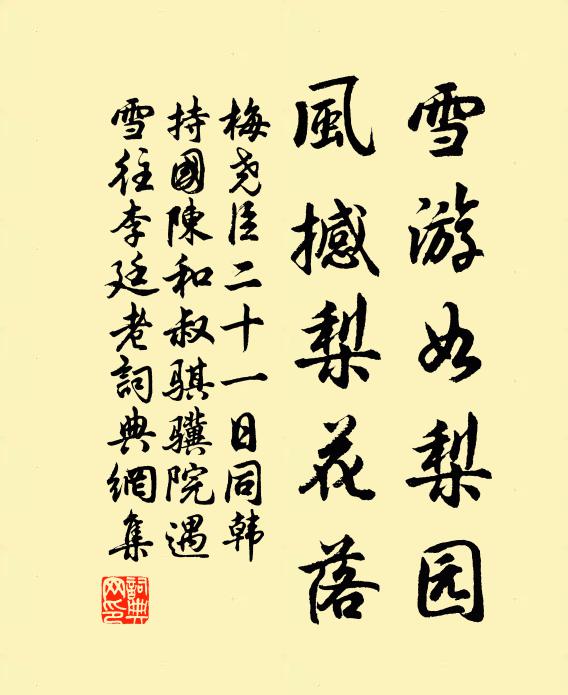 雪游如梨园
風撼梨花落
梅尧臣二十一日同韩
持國陳和叔骐驥院遇
雪往李廷老詞典網集
詞典网印